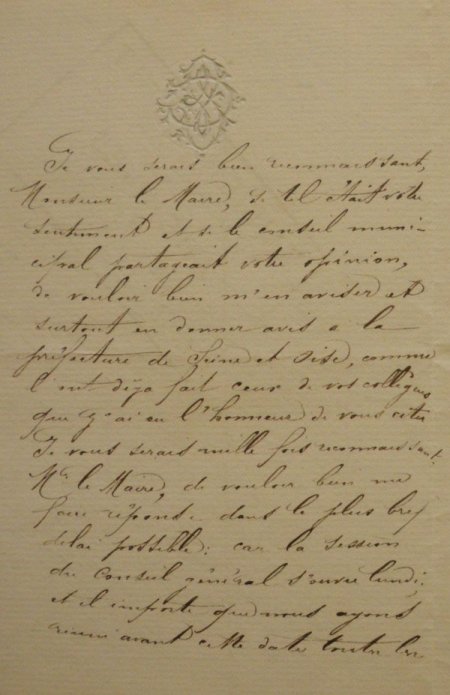 Je vous serais bien reconnaissant,
Monsieur le Maire, si tel était votre
sentiment et si le conseil muni-
cipal partageait votre opinion,
de vouloir bien m'en aviser et
surtout en donner avis a la
préfecture de Seine et Oise, comme
l'ont déja fait ceux de vos collègues
que j'ai eu l'honneur de vous citer
Je vous serais mille fois reconnaissant,
Mr le Maire, de vouloir bien me
faire réponse dans le plus bref
delai possible; car la session
du Conseil général s'ouvre lundi,
et il importe que nous ayons
réuni avant cette date toutes les